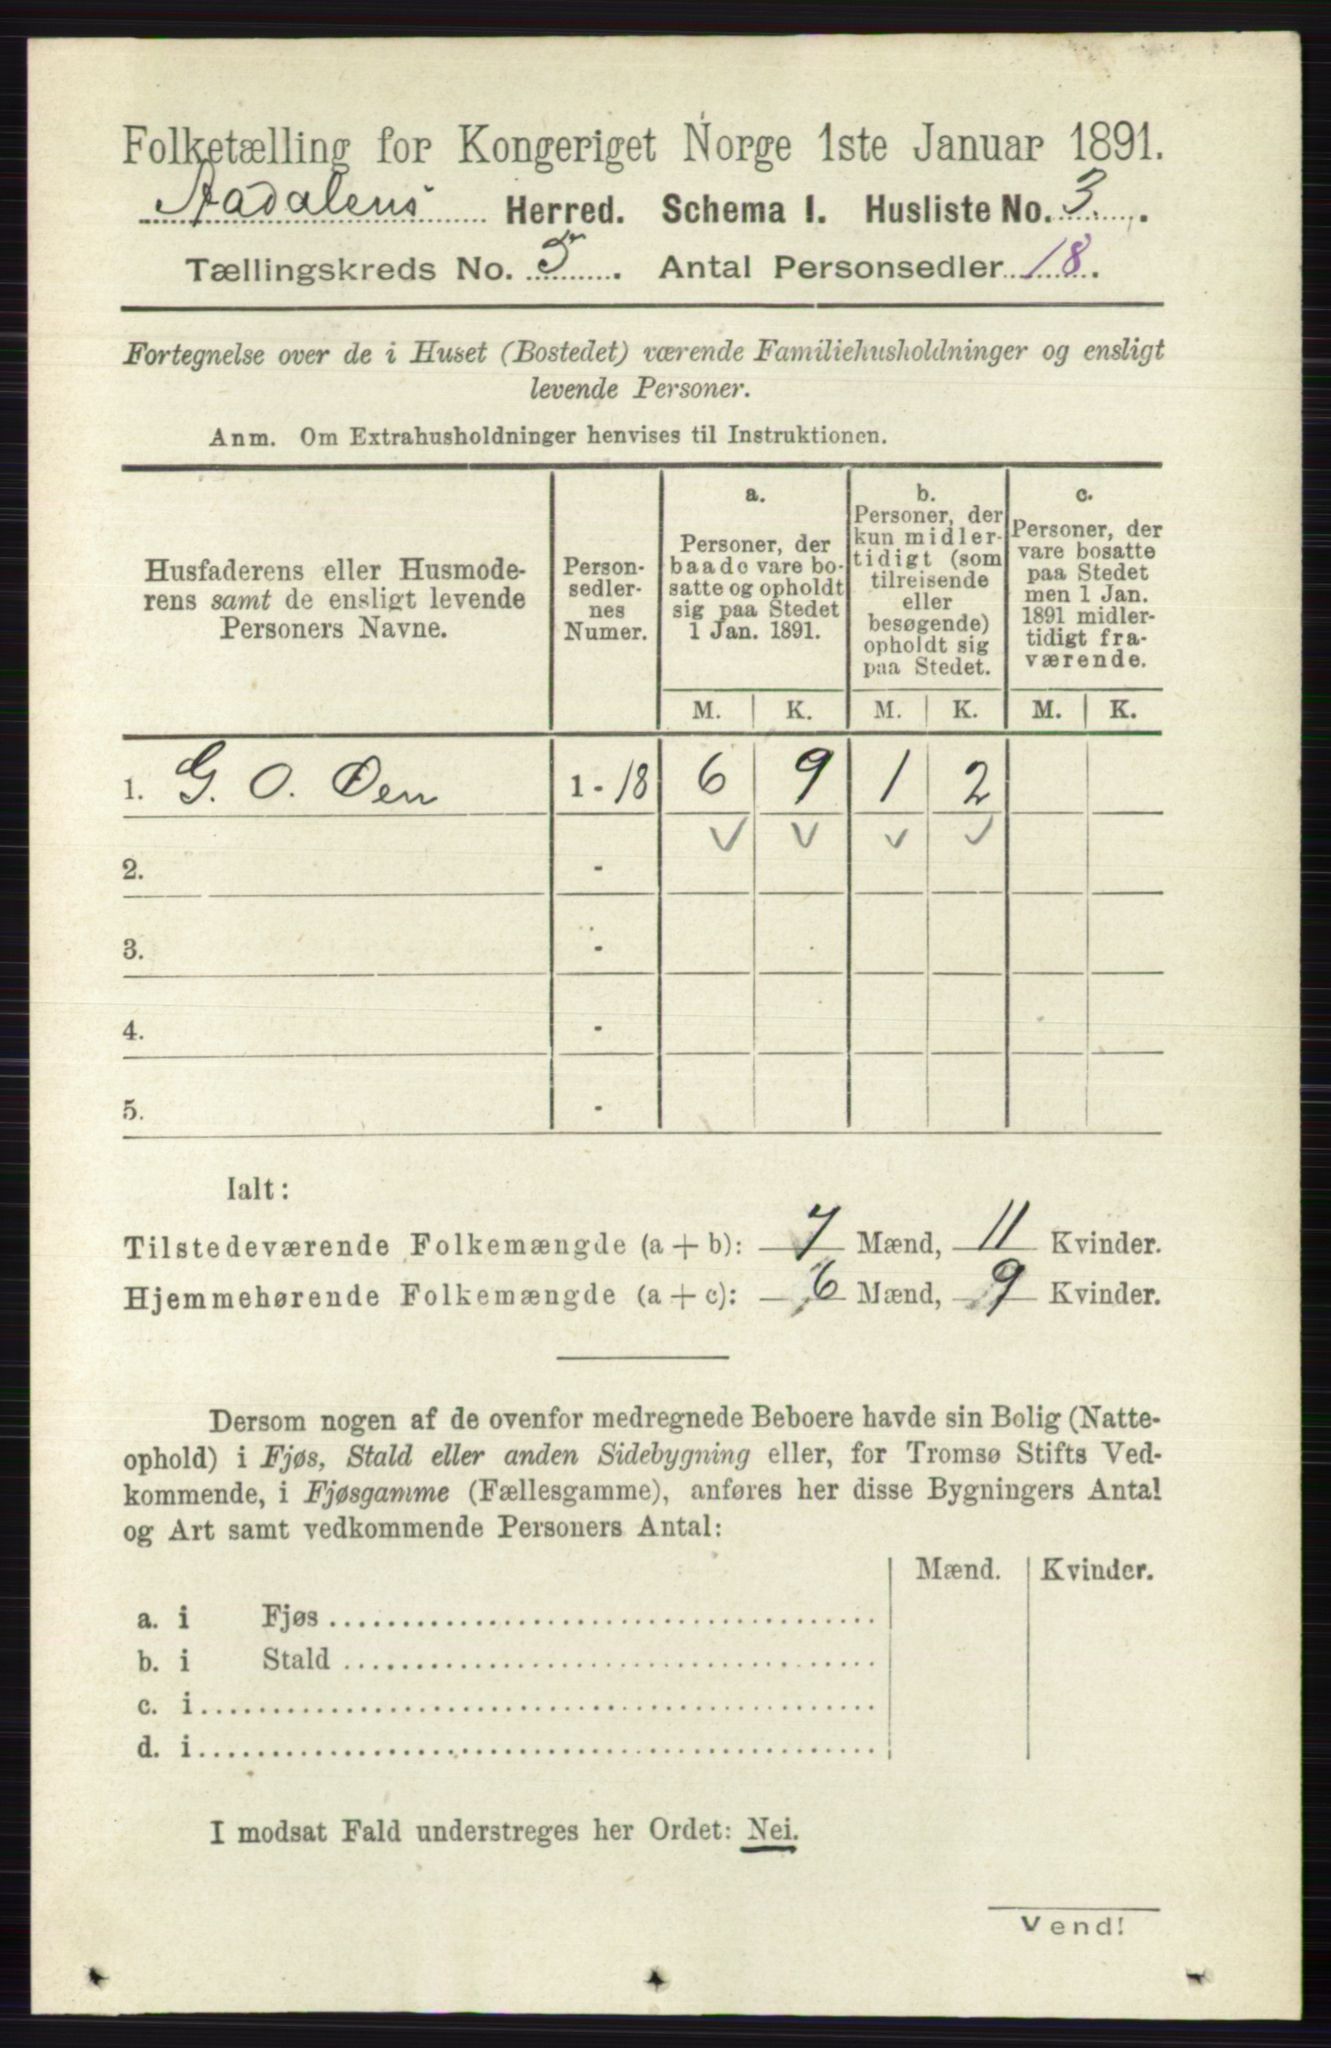 Folketælling for Kongeriget Norge 1ste Januar 1891.
Aadalens Herred. Schema I. Husliste No. 3.
Tællingskreds No. 5. Antal Personsedler 18.
Fortegnelse over de i Huset (Bostedet) værende Familiehusholdninger og ensligt
levende Personer.
Anm. Om Extrahusholdninger henvises til Instruktionen.
Husfaderens eller Husmode-
rens samt de ensligt levende
Personers Navne.
Person-
sedler-
nes
Numer.
a.
Personer, der
baade vare bo-
satte og opholdt
sig paa Stedet
1 Jan. 1891.
b.
Personer, der
kun midler-
tidigt (som
tilreisende
eller
besøgende)
opholdt sig
paa Stedet.
c.
Personer, der
vare bosatte
paa Stedet
men 1 Jan.
1891 midler-
tidigt fra-
værende.
M. K. M. K. M. K.
1. G. O. Øen 1 - 18 6 9 1 2
2. -
3. -
4. -
5. -
Ialt:
Tilstedeværende Folkemængde (a + b): 7 Mænd, 11 Kvinder.
Hjemmehørende Folkemængde (a + c): 6 Mænd, 9 Kvinder.
Dersom nogen af de ovenfor medregnede Beboere havde sin Bolig (Natte-
ophold) i Fjøs, Stald eller anden Sidebygning eller, for Tromsø Stifts Ved-
kommende, i Fjøsgamme (Fællesgamme), anføres her disse Bygningers Antal
og Art samt vedkommende Personers Antal:
Mænd. Kvinder.
a. i Fjøs
b. i Stald
c. i
d. i
I modsat Fald understreges her Ordet: Nei.
Vend!